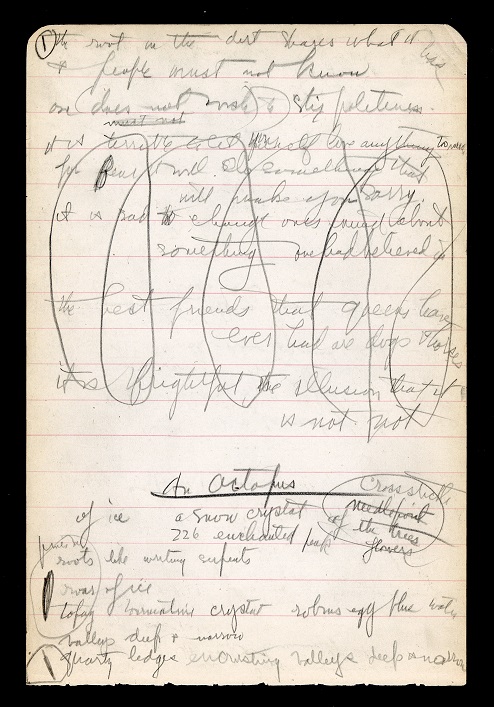 1 the root in the dirt shares what it has
& people must not know
one does not wish to stop politeness.
must not
it is terrible to let yourself love anything
for fear it will do something that
will make you sorry.
it is sad to change ones mind about
something one had believed in
the best friends that queens have
ever had are dogs & horses
it is frightful the illusion that it
is not not
An Octopus
Cross stitch
of ice a snow crystal needlepoint
226 enchanted peaks of the trees
flowers
roots like writing serpents
roar of ice
crystal robins egg blue water
valleys deep & narrow
1 quartz ledges encrusting valleys deep & narrow